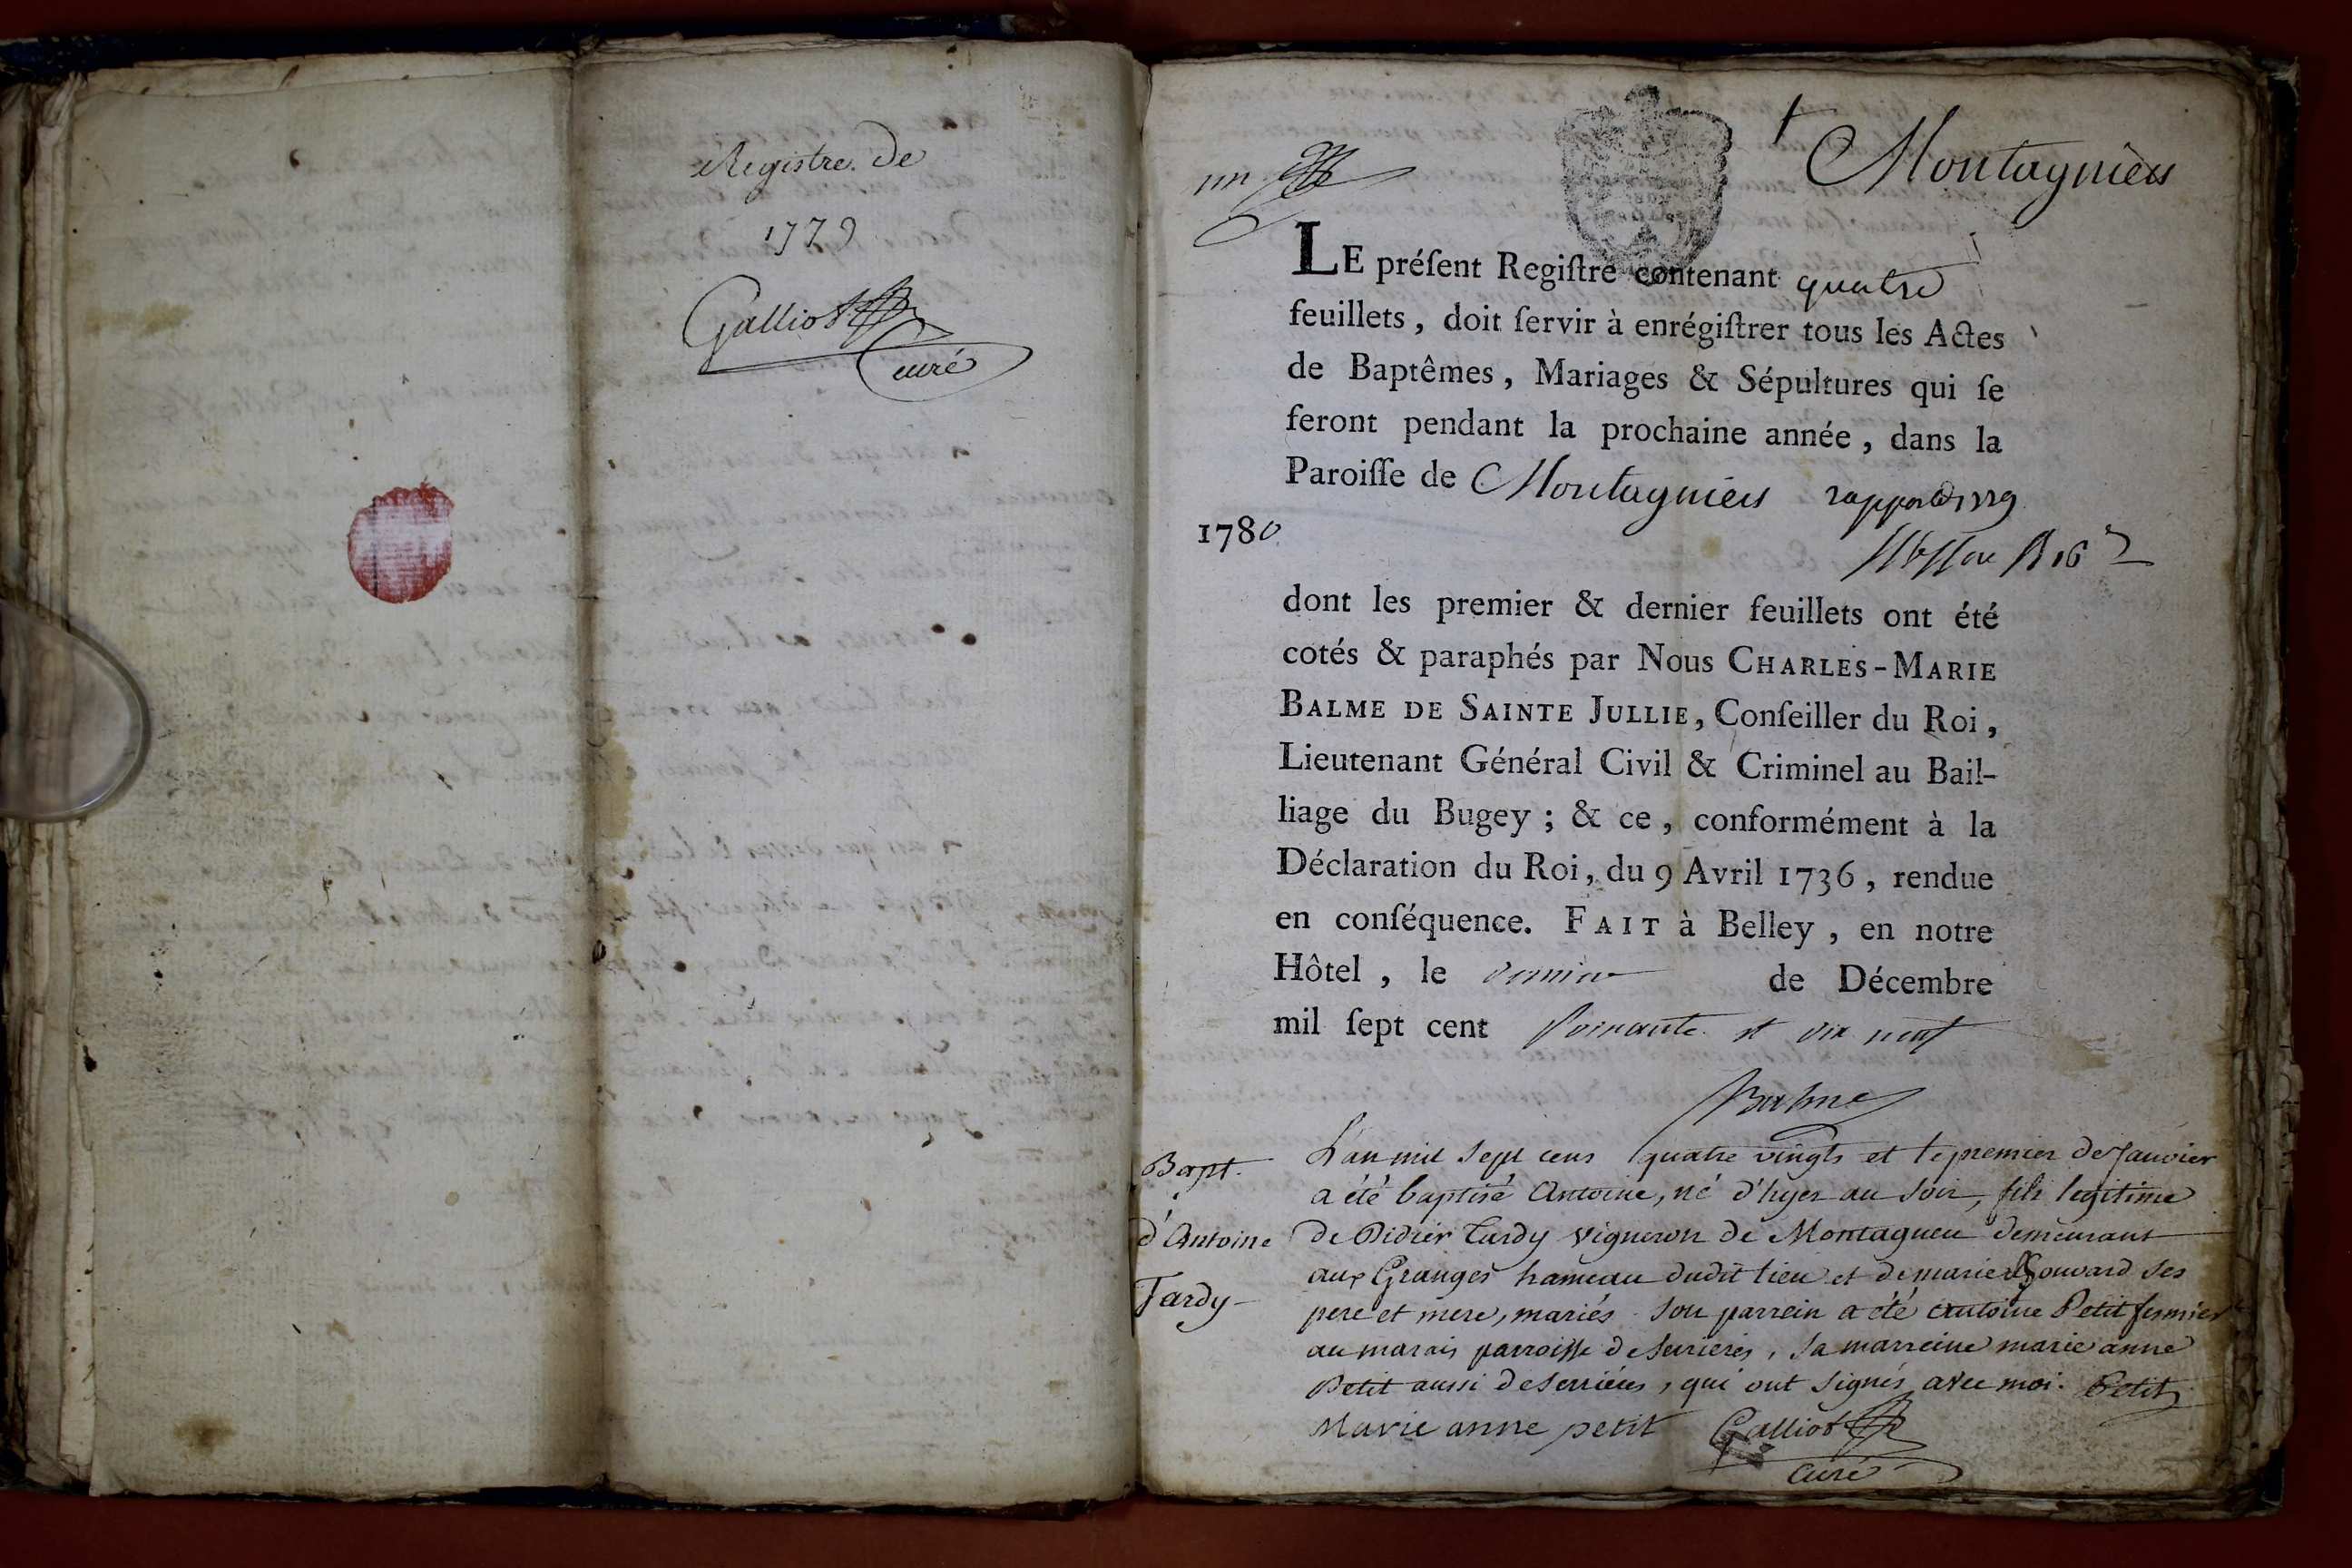 Registre de
1779
Galliot
curé
un
Montagnieu
LE préſent Regiſtre contenant quatre
feuillets, doit ſervir à enrégiſtrer tous les Actes
de Baptêmes, Mariages & Sépultures qui ſe
feront pendant la prochaine année, dans la
Paroiſſe de Montagnieu
1780
dont les premier & dernier feuillets ont été
cotés & paraphés par Nous CHARLES-MARIE
BALME DE SAINTE JULLIE, Conſeiller du Roi,
Lieutenant Général Civil & Criminel au Bail-
liage du Bugey; & ce, conformément à la
Déclaration du Roi, du 9 Avril 1736, rendue
en conſéquence. FAIT à Belley, en notre
Hôtel, le dernier de Décembre
mil ſept cent soixante et dix neuf
Balme
Bapt.
d'Antoine
Tardy
L'an mil sept cens quatre vingts et le premier de Janvier
a été baptisé Antoine, né d'hyer au soir, fils legitime
de Didier Tardy vigneron de Montagneu demeurant
aux Granges hameau dudit lieu et de marie Gouvard ses
pere et mere, mariés. son parrein a été antoine Petit fermier
au marais parroisse de serrieres, sa marreine marie anne
Petit aussi de serrieres, qui ont signés avec moi. Petit
Marie anne petit Galliot
curé